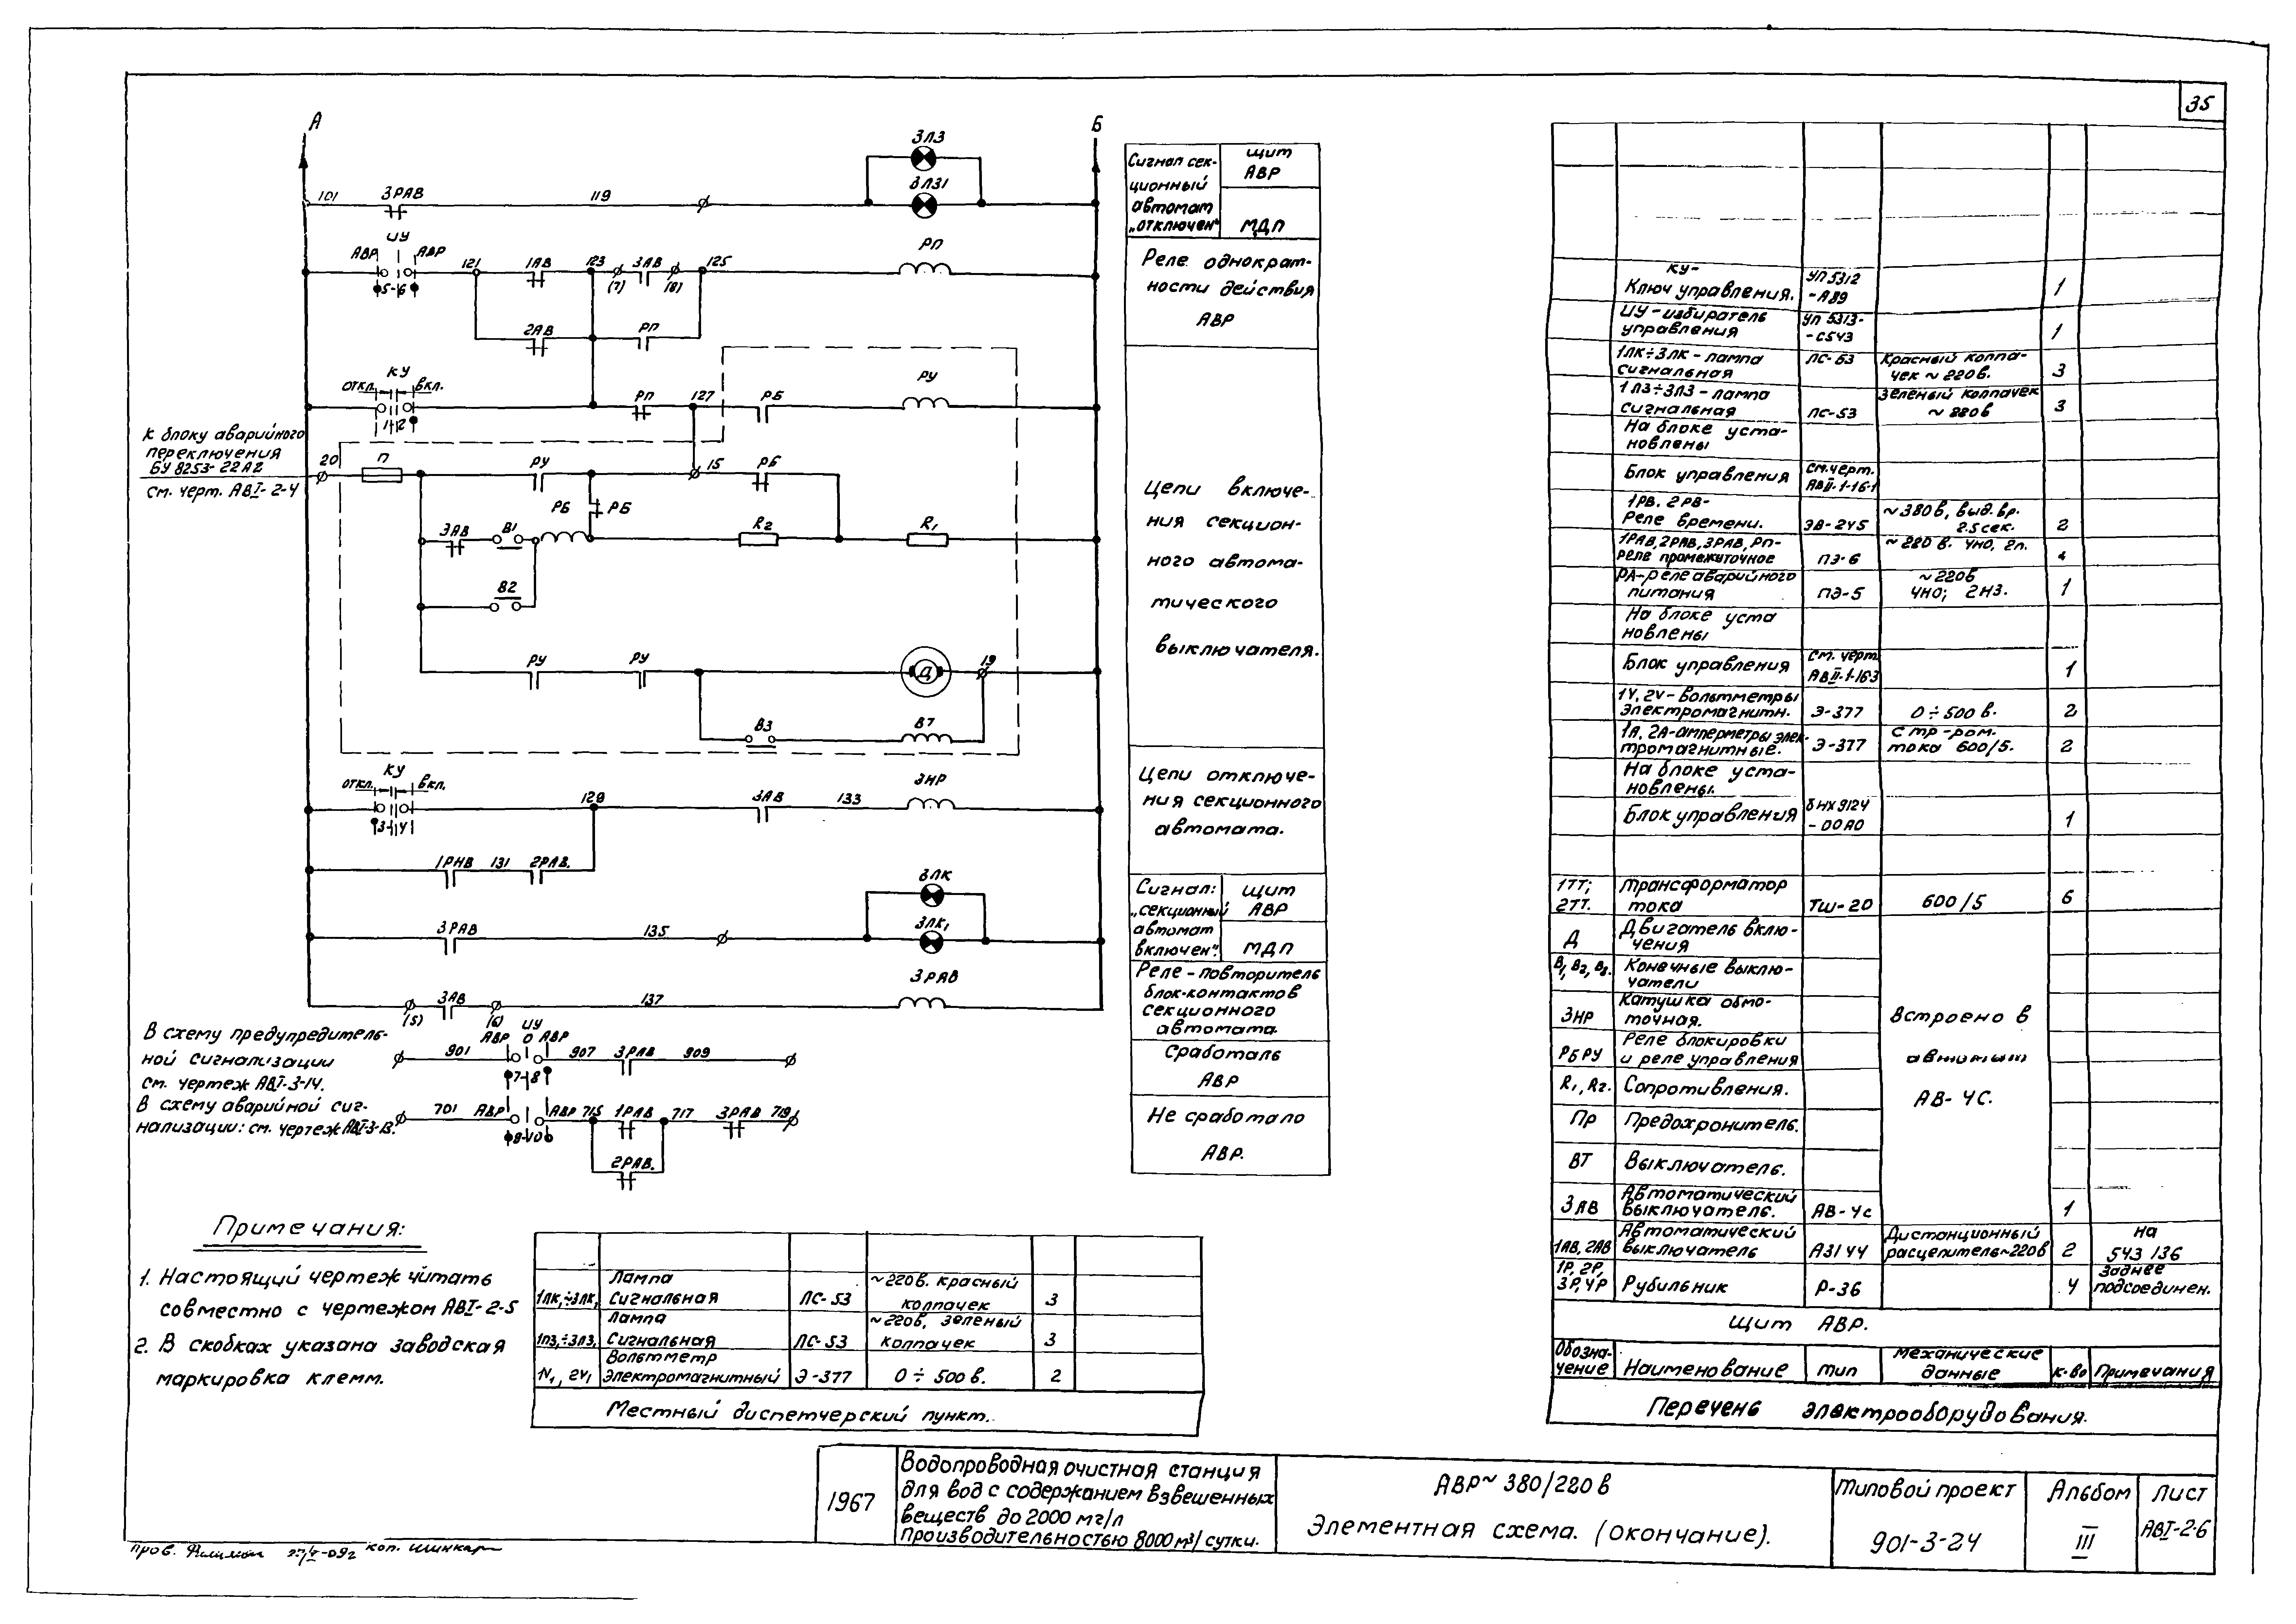 35
А
Б
3ЛЗ
3ЛЗ1
101
3РАВ
119
ИУ
АВР
АВР
5-6
121
1АВ
123
(7)
3АВ
(8)
125
РП
2АВ
РП
КУ
откл.
вкл.
1-2
РП
127
РБ
РУ
К блоку аварийного
переключения
БУ 8253-22А2
см. черт. АВI-2-4
20
П
РУ
15
РБ
РБ
РБ
3АВ
В1
R2
R1
В2
РУ
РУ
Д
19
В3
ВТ
КУ
откл.
вкл.
3-4
129
3АВ
133
3НР
1РНВ
131
2РАВ.
3ЛК
3ЛК1
3РАВ
135
3РАВ
(5)
3АВ
(6)
137
В схему предупредитель-
ной сигнализации
см. чертеж АВI-3-14.
901
АВР
ИУ
О
АВР
7-8
907
3РАВ
909
В схему аварийной сиг-
нализации: см. чертеж АВI-3-13.
701
АВР
АВР
9-10
715
1РАВ
717
3РАВ
719
2РАВ.
Сигнал сек-
ционный
автомат
„отключен"
щит
АВР
МДП
Реле однократ-
ности действия
АВР
Цепи включе-
ния секцион-
ного автома-
тического
выключателя.
Цепи отключе-
ния секционного
автомата.
Сигнал:
„секционный
автомат
включен".
щит
АВР
МДП
Реле-повторитель
блок-контактов
секционного
автомата.
Сработаль
АВР
Не сработало
АВР.
КУ-
Ключ управления. УП5312 -А89 1
ИУ-избиратель
управления УП 5313- -С543 1
1ЛК÷3ЛК-лампа
сигнальная ЛС-53 Красный колпа-
чек ~220в. 3
1ЛЗ÷3ЛЗ-лампа
сигнальная ЛС-53 Зеленый колпачек
~220в 3
На блоке уста-
новлены
Блок управления см.черт. АВII-1-16-1
1РВ. 2РВ-
Реле времени. ЭВ-245 ~380в, выд. вр.
2.5сек. 2
1РАВ,2РАВ,3РАВ, РП-
реле промежуточное ПЭ-6 ~220 в. 4но, 2п. 4
РА-реле аварийного
питания ПЭ-5 ~220в
4но; 2нз. 1
На блоке уста
новлены
Блок управления см. черт АВII-1-163 1
1V, 2V-вольтметры
Электромагнитн. Э-377 0÷500 в. 2
1А, 2А-амперметры элек-
тромагнитные. Э-377 С тр-ром.
тока 600/5. 2
На блоке уста-
новлены.
Блок управления БНХ9124 -00А0 1
1ТТ;
2ТТ. трансформатор
тока ТШ-20 600/5 6
Д Двигатель вклю-
чения
В1, В2, В3. Конечные выклю-
чатели
3НР Катушка обмо-
точная.
РБ РУ Реле блокировки
и реле управления
R1, R2. Сопротивления.
Пр Предохранитель.
ВТ Выключатель.
Встроено в
автомат
АВ-4С.
3АВ Автоматический
выключатель. АВ-4с 1
1АВ, 2АВ Автоматический
выключатель А3144 Дистанционный
расцепитель~220в 2 на
543 136
1Р, 2Р,
3Р, 4Р Рубильник Р-36 4 Заднее
подсоединен.
Щит АВР.
Обозна-
чение Наименование тип механические
данные к-во Примечания
Перечень электрооборудования.
Примечания:
1. Настоящий чертеж читать
совместно с чертежом АВI-2-5
2. В скобках указана заводская
маркировка клемм.
1ЛК1÷3ЛК1 Лампа
Сигнальная ЛС-53 ~220в. красный
колпачек 3
1ЛЗ1÷3ЛЗ1 Лампа
Сигнальная ЛС-53 ~220в, зеленый
колпачек 3
1V1, 2V1 Вольтметр
Электромагнитный Э-377 0÷500 в. 2
Местный диспетчерский пункт.
1967
Водопроводная очистная станция
для вод с содержанием взвешенных
веществ до 2000 мг/л
производительностью 8000 м3/сутки.
АВР~380/220 в
Элементная схема. (окончание).
Типовой проект
901-3-24
Альбом
III
Лист
АВI-2-6
пров.
коп. Шинкар